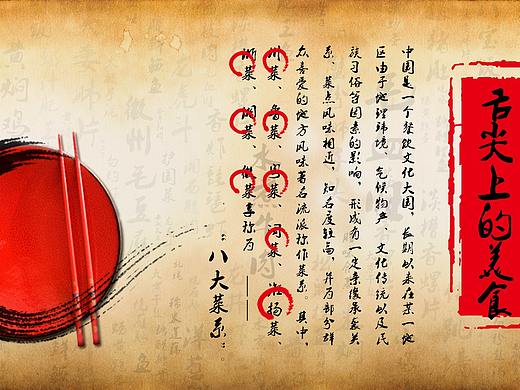 舌尖上的美食
中国是一个餐饮文化大国，长期以来在某一地
区由于地理环境、气候物产、文化传统以及民
族习俗等因素的影响，形成有一定亲缘承袭关
系、菜点风味相近，知名度较高，并为部分群
众喜爱的地方风味著名流派称作菜系。其中，
川菜、鲁菜、粤菜、菜、淮扬菜、
浙菜、闽菜、徽菜享称为
“八大菜系”
水煮牛肉
徽州毛豆